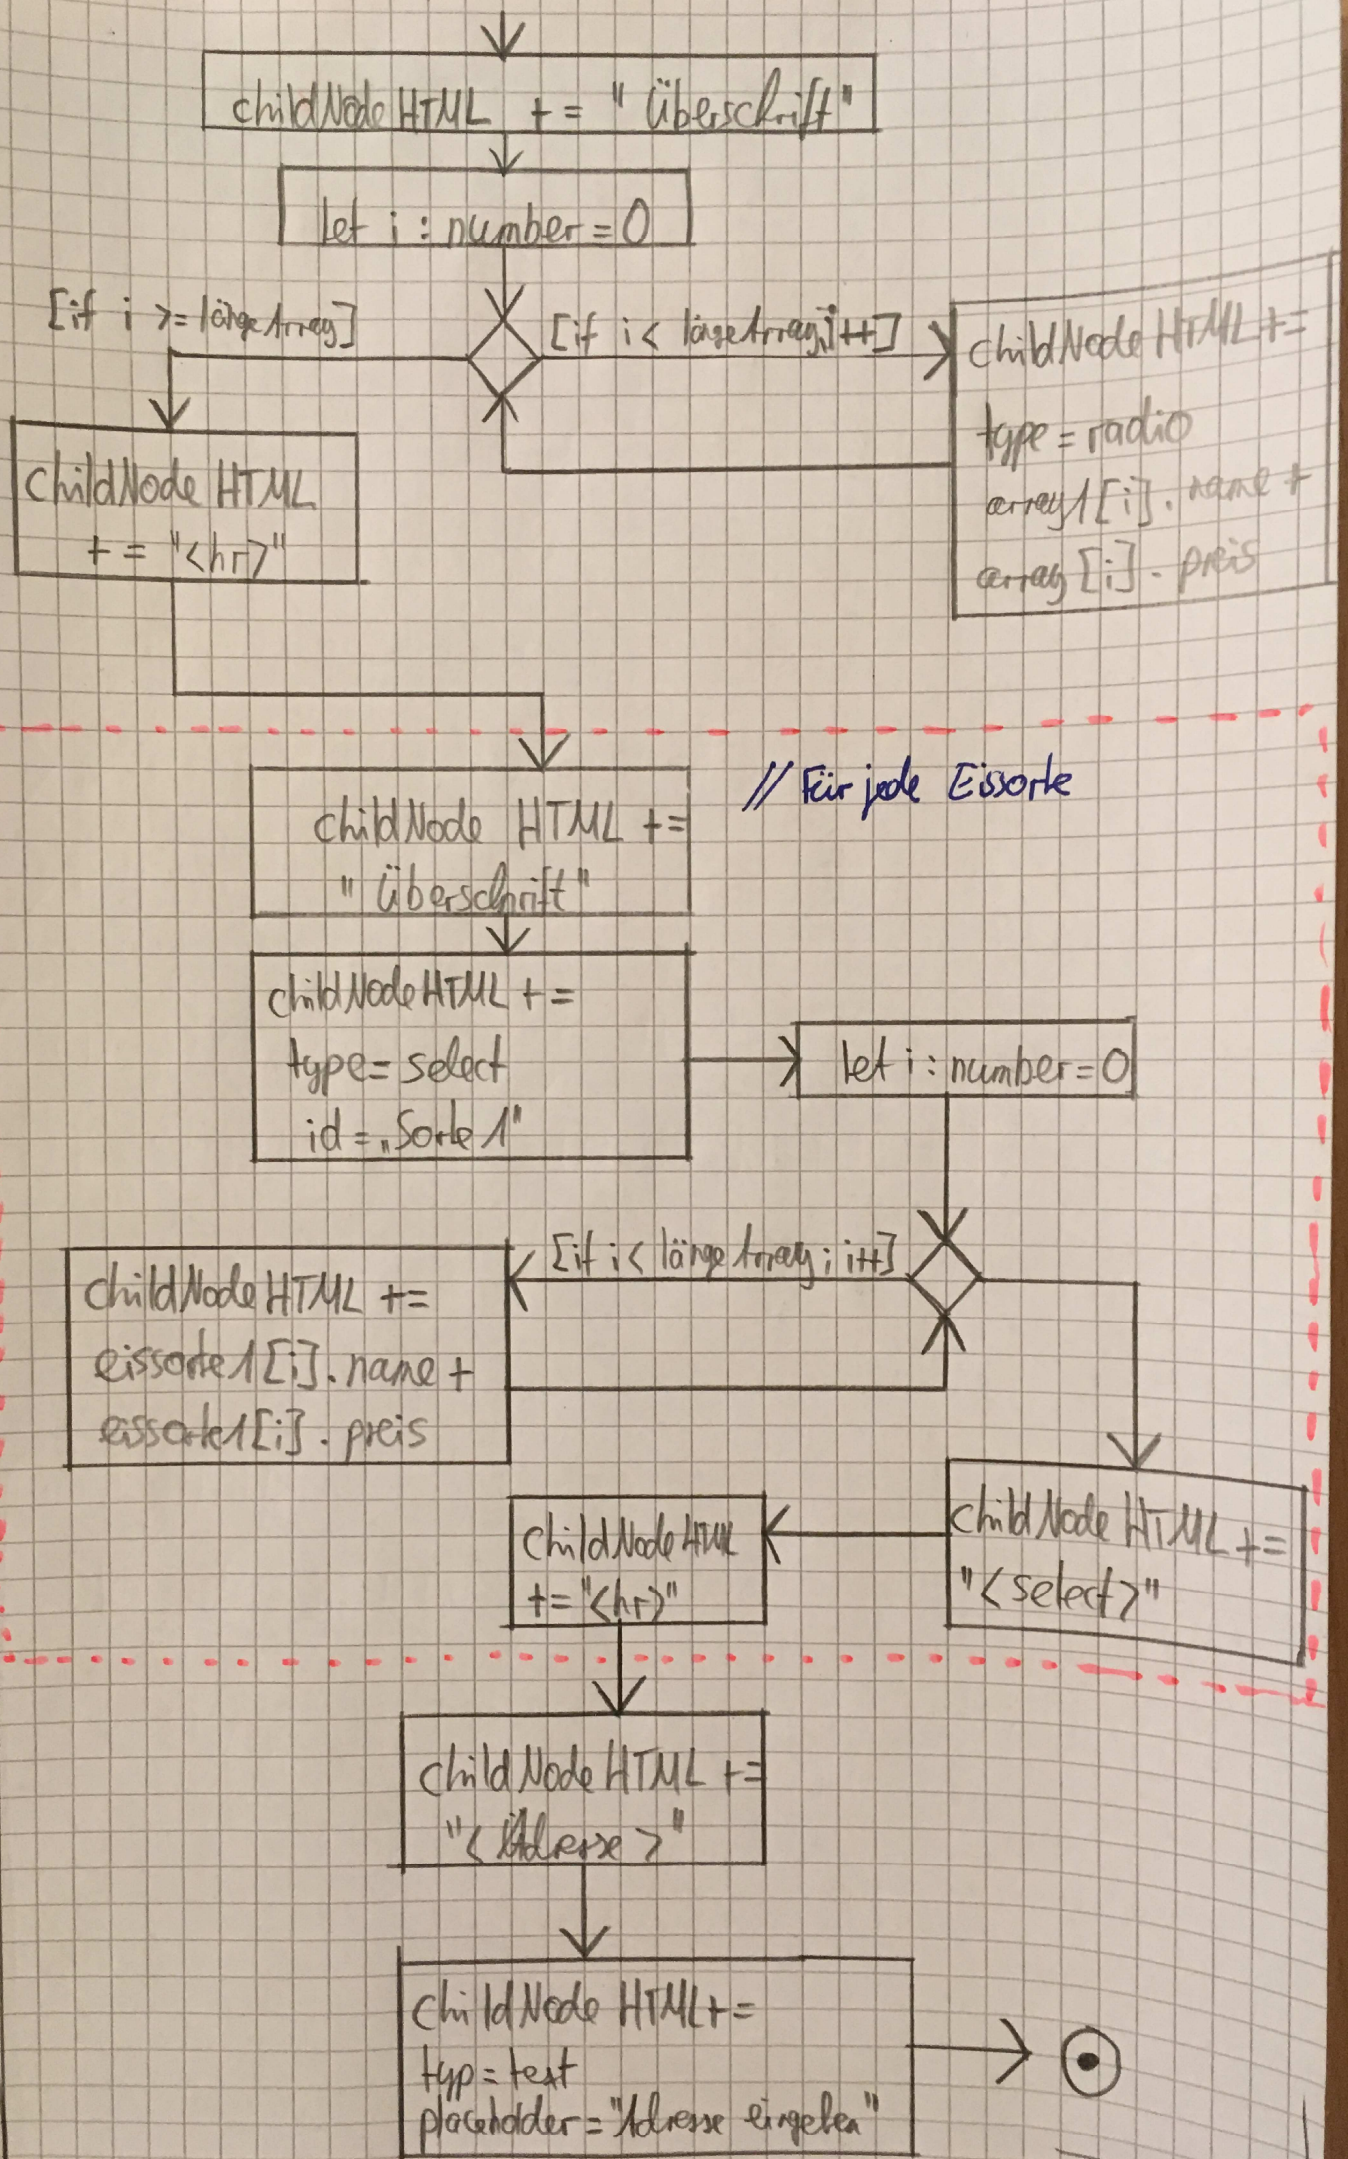 childNodeHTML += "Überschrift"
let i : number = 0
[if i >= längeArray]
[if i < längeArray; i++]
childNodeHTML +=
type = radio
array1[i].name +
array[i].preis
childNodeHTML
+= "<hr>"
// Für jede Eissorte
childNode HTML +=
"Überschrift"
childNodeHTML +=
type = select
id = „Sorte 1"
let i : number = 0
[if i < längeArray; i++]
childNodeHTML +=
eissorte1[i].name +
eissorte1[i].preis
childNodeHTML +=
"<select>"
childNodeHTML
+= "<hr>"
childNodeHTML +=
"<Adresse>"
childNode HTML +=
typ = text
placeholder = "Adresse eingeben"